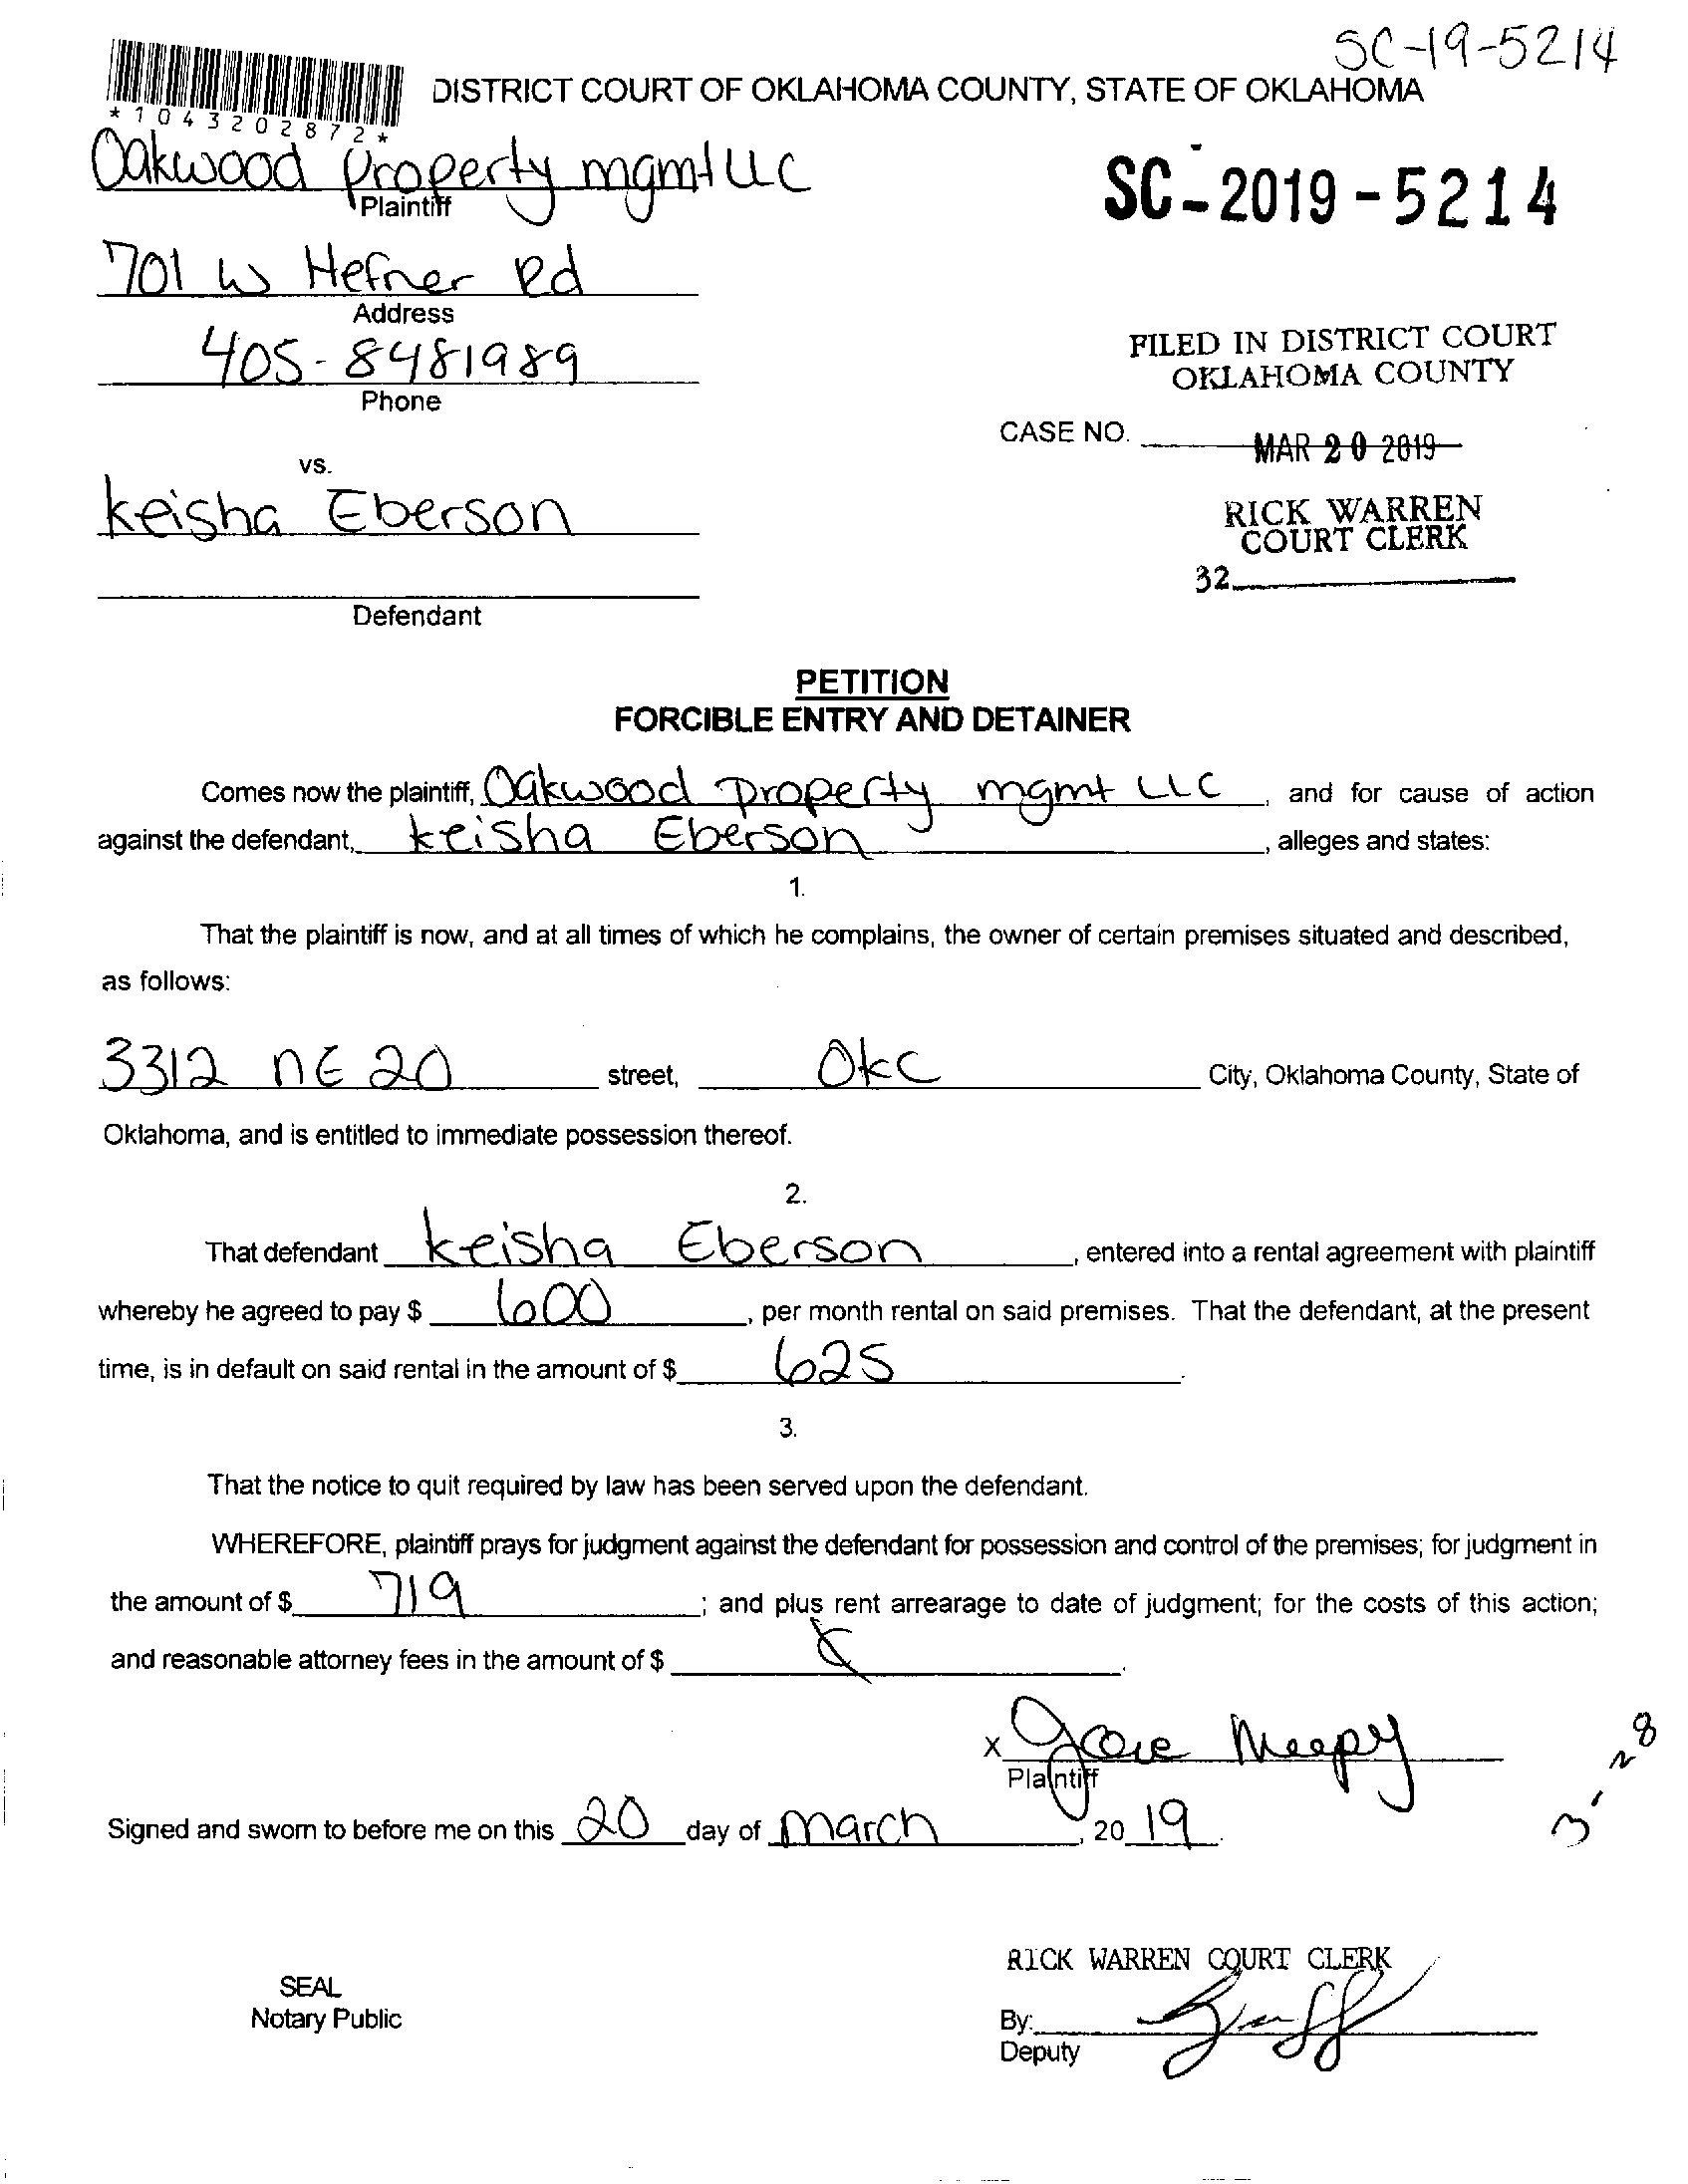 SC-19-5214
DISTRICT COURT OF OKLAHOMA COUNTY, STATE OF OKLAHOMA
*1043202872*
Oakwood Property mgmt LLC
Plaintiff
SC-2019-5214
701 W Hefner Rd
Address
405-8481989
Phone
FILED IN DISTRICT COURT
OKLAHOMA COUNTY
CASE NO. MAR 20 2019
vs.
keisha Eberson
RICK WARREN
COURT CLERK
32
Defendant
PETITION
FORCIBLE ENTRY AND DETAINER
Comes now the plaintiff, Oakwood Property mgmt LLC, and for cause of action
against the defendant, keisha Eberson, alleges and states:
1.
That the plaintiff is now, and at all times of which he complains, the owner of certain premises situated and described,
as follows:
3312 NE 20 street, OKC City, Oklahoma County, State of
Oklahoma, and is entitled to immediate possession thereof.
2.
That defendant keisha Eberson, entered into a rental agreement with plaintiff
whereby he agreed to pay $ 600, per month rental on said premises. That the defendant, at the present
time, is in default on said rental in the amount of $ 625.
3.
That the notice to quit required by law has been served upon the defendant.
WHEREFORE, plaintiff prays for judgment against the defendant for possession and control of the premises; for judgment in
the amount of $ 719; and plus rent arrearage to date of judgment; for the costs of this action;
and reasonable attorney fees in the amount of $
X
Plaintiff
3-28
Signed and sworn to before me on this 20 day of March, 2019.
RICK WARREN COURT CLERK
SEAL
Notary Public
By:
Deputy